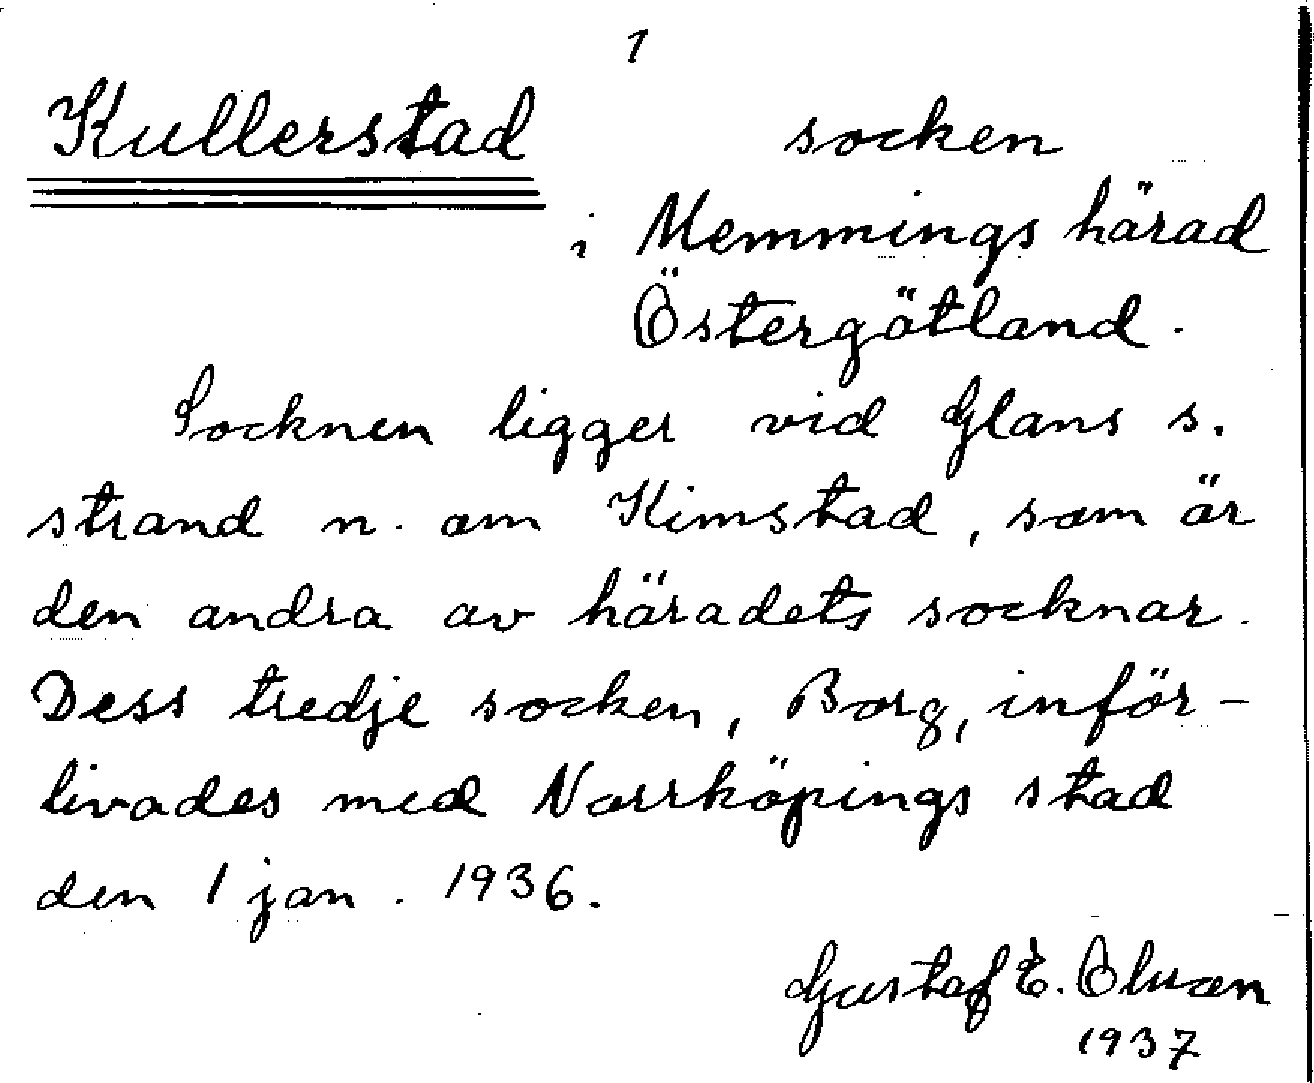 1
Kullerstad socken
i Memmings härad
Östergötland.
Socknen ligger vid Glans s.
strand n. om Kimstad, som är
den andra av häradets socknar.
Dess tredje socken, Borg, inför-
livades med Norrköpings stad
den 1 jan. 1936.
Gustaf E.
1937